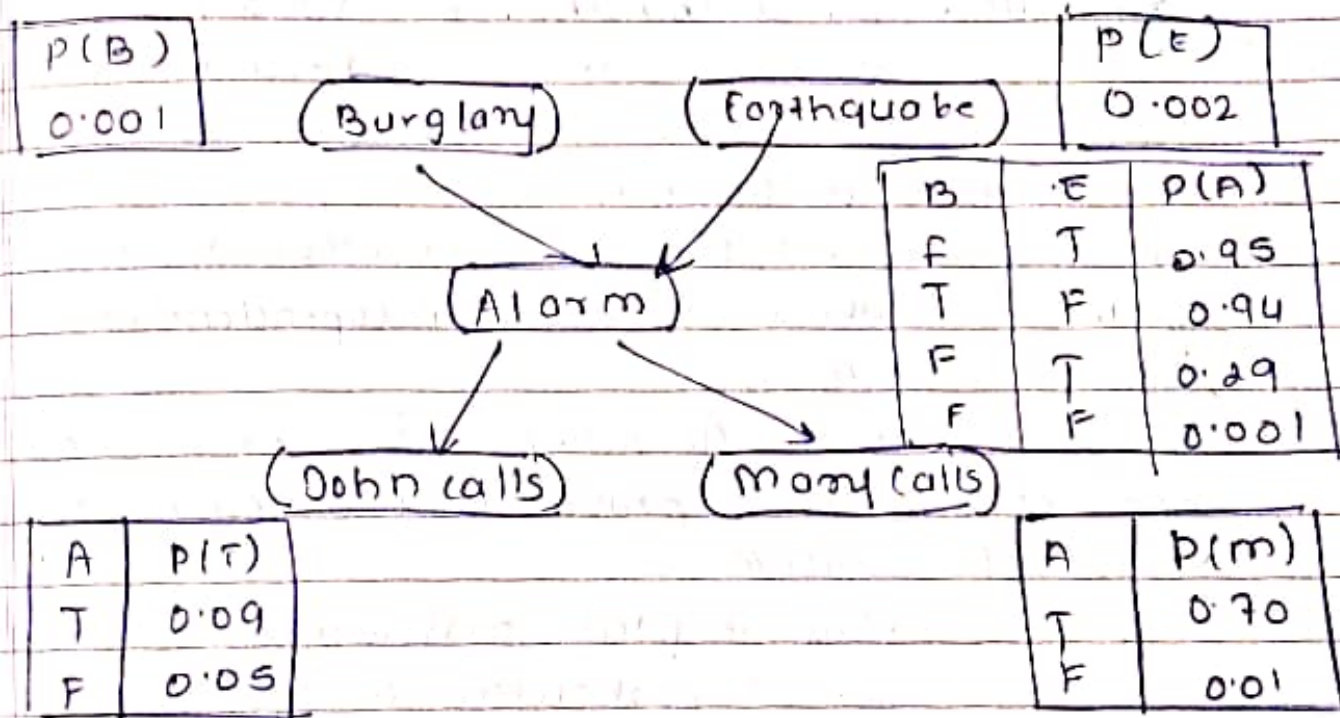 P(B)
0.001
(Burglary)
(Earthquabe)
P(E)
0.002
B E P(A)
f T 0.95
T F 0.94
F T 0.29
F F 0.001
(Alarm)
(Dohn calls)
(Mary Calls)
A P(T)
T 0.09
F 0.05
A P(m)
T 0.70
F 0.01